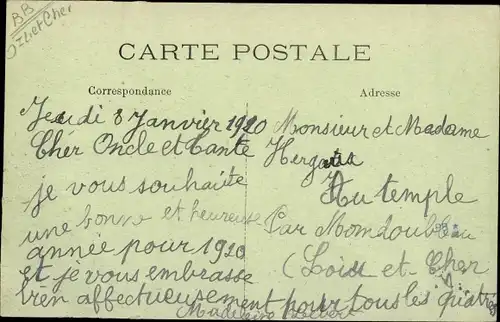 BB
CARTE POSTALE
Correspondance
Adresse
Jeudi 8 Janvier 1920
Cher Oncle et Tante
je vous souhaite
une bonne et heureuse
année pour 1920
et je vous embrasse
bien affectueusement pour tous les quatres
Monsieur et Madame
Au temple
Par Mondoubleau
(Loir et Cher